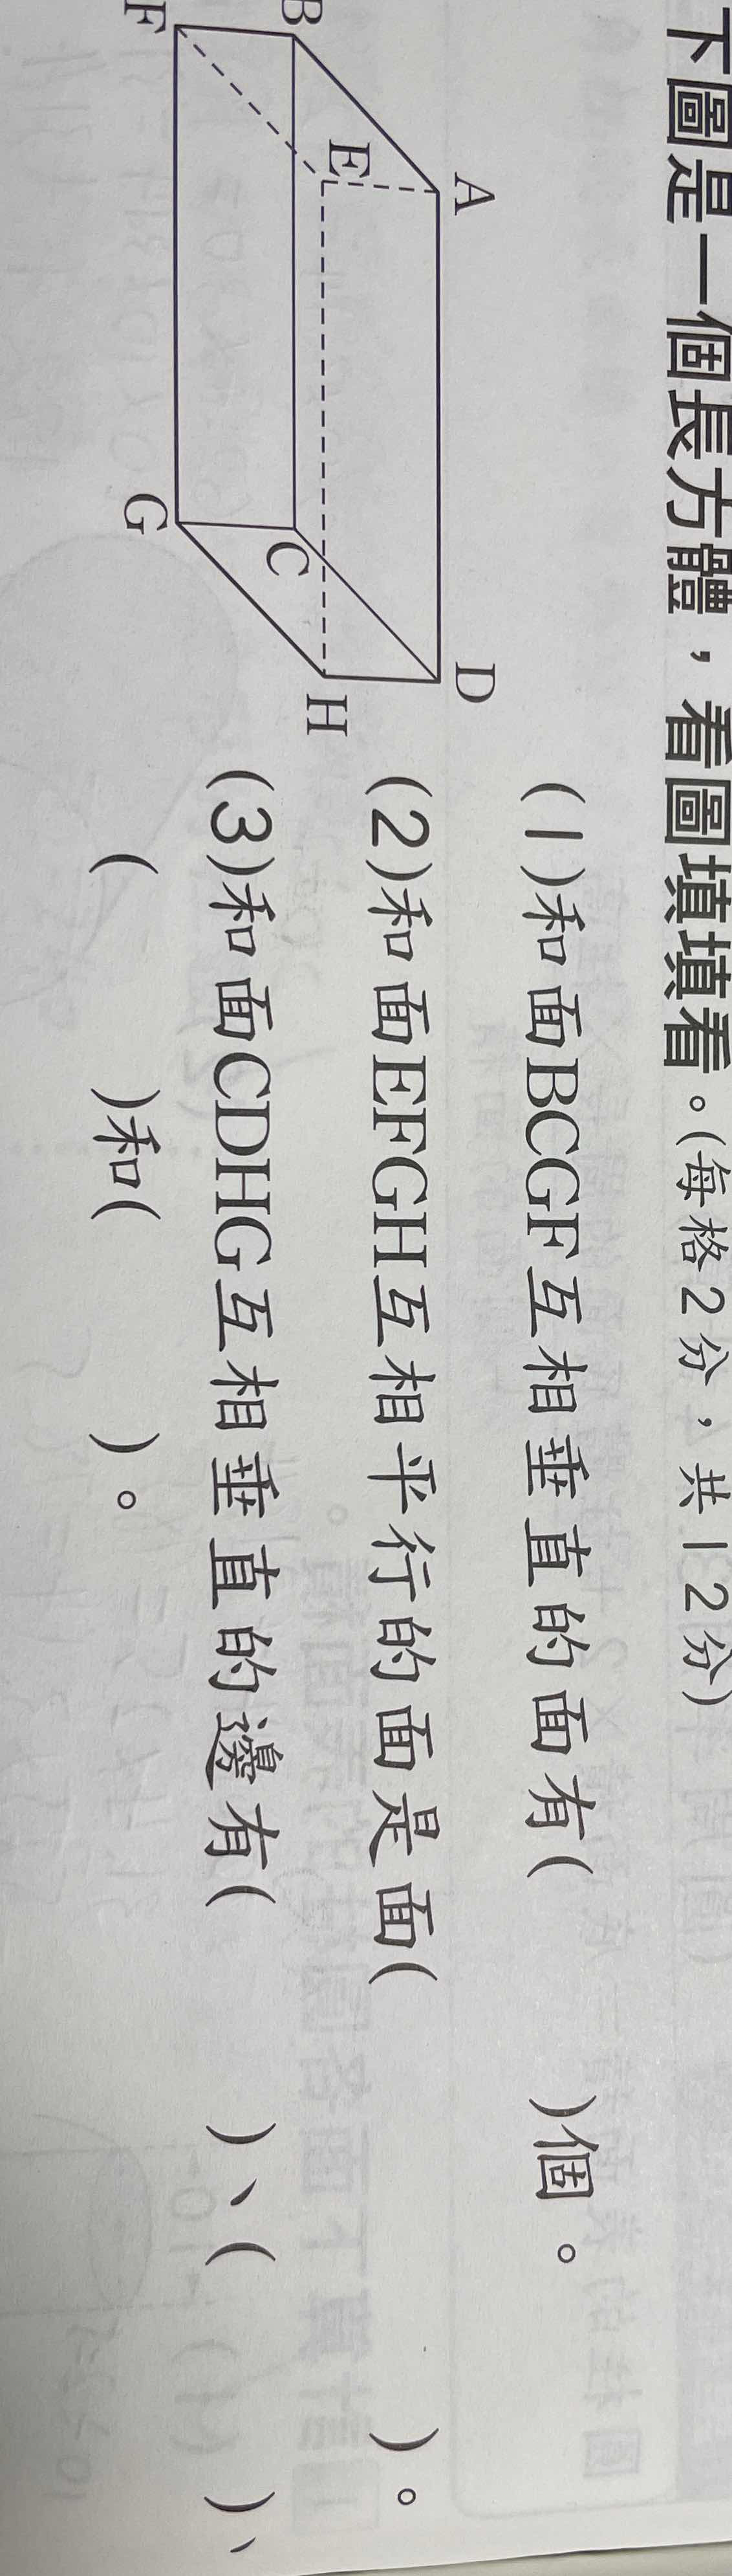 下圖是一個長方體，看圖填填看。(每格2分，共12分)
A
D
B
C
E
H
F
G
(1)和面BCGF互相垂直的面有(　　)個。
(2)和面EFGH互相平行的面是面(　　)。
(3)和面CDHG互相垂直的邊有(　　)、(　　)、
(　　)和(　　)。